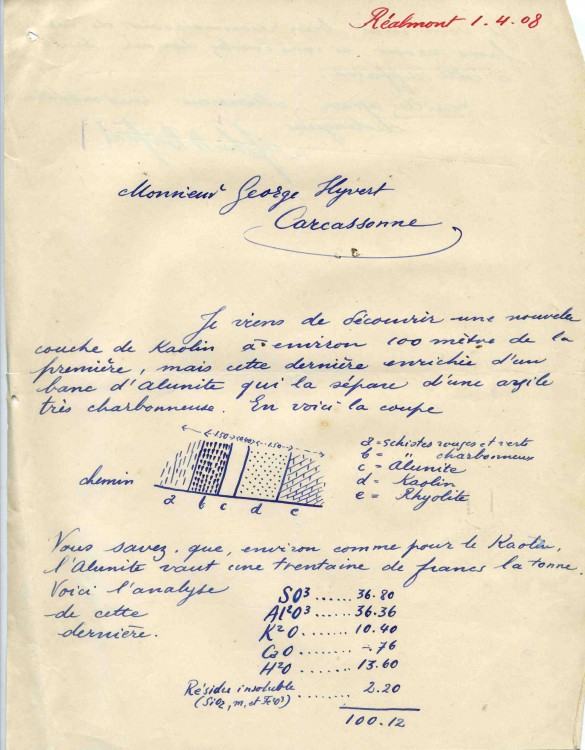 Réalmont 1.4.08
Monsieur George Hyvert
Carcassonne
Je viens de découvrir une nouvelle
couche de Kaolin à environ 100 mètre de la
première, mais cette dernière enrichie d'un
banc d'Alunite qui la sépare d'une argile
très charbonneuse. En voici la coupe
1.50 0.60 1.50
chemin
a b c d e
a = schistes rouges et verts
b = " charbonneux
c = Alunite
d = Kaolin
e = Rhyolite
Vous savez que, environ comme pour le Kaolin,
l'Alunite vaut une trentaine de francs la tonne.
Voici l'analyse
de cette
dernière.
SO³ ...... 36.80
Al²O³ ..... 36.36
K²O ....... 10.40
CaO ...... -.76
H²O ...... 13.60
Résidu insoluble ........ 2.20
(SiO2, m, et Fe²O³)
100.12